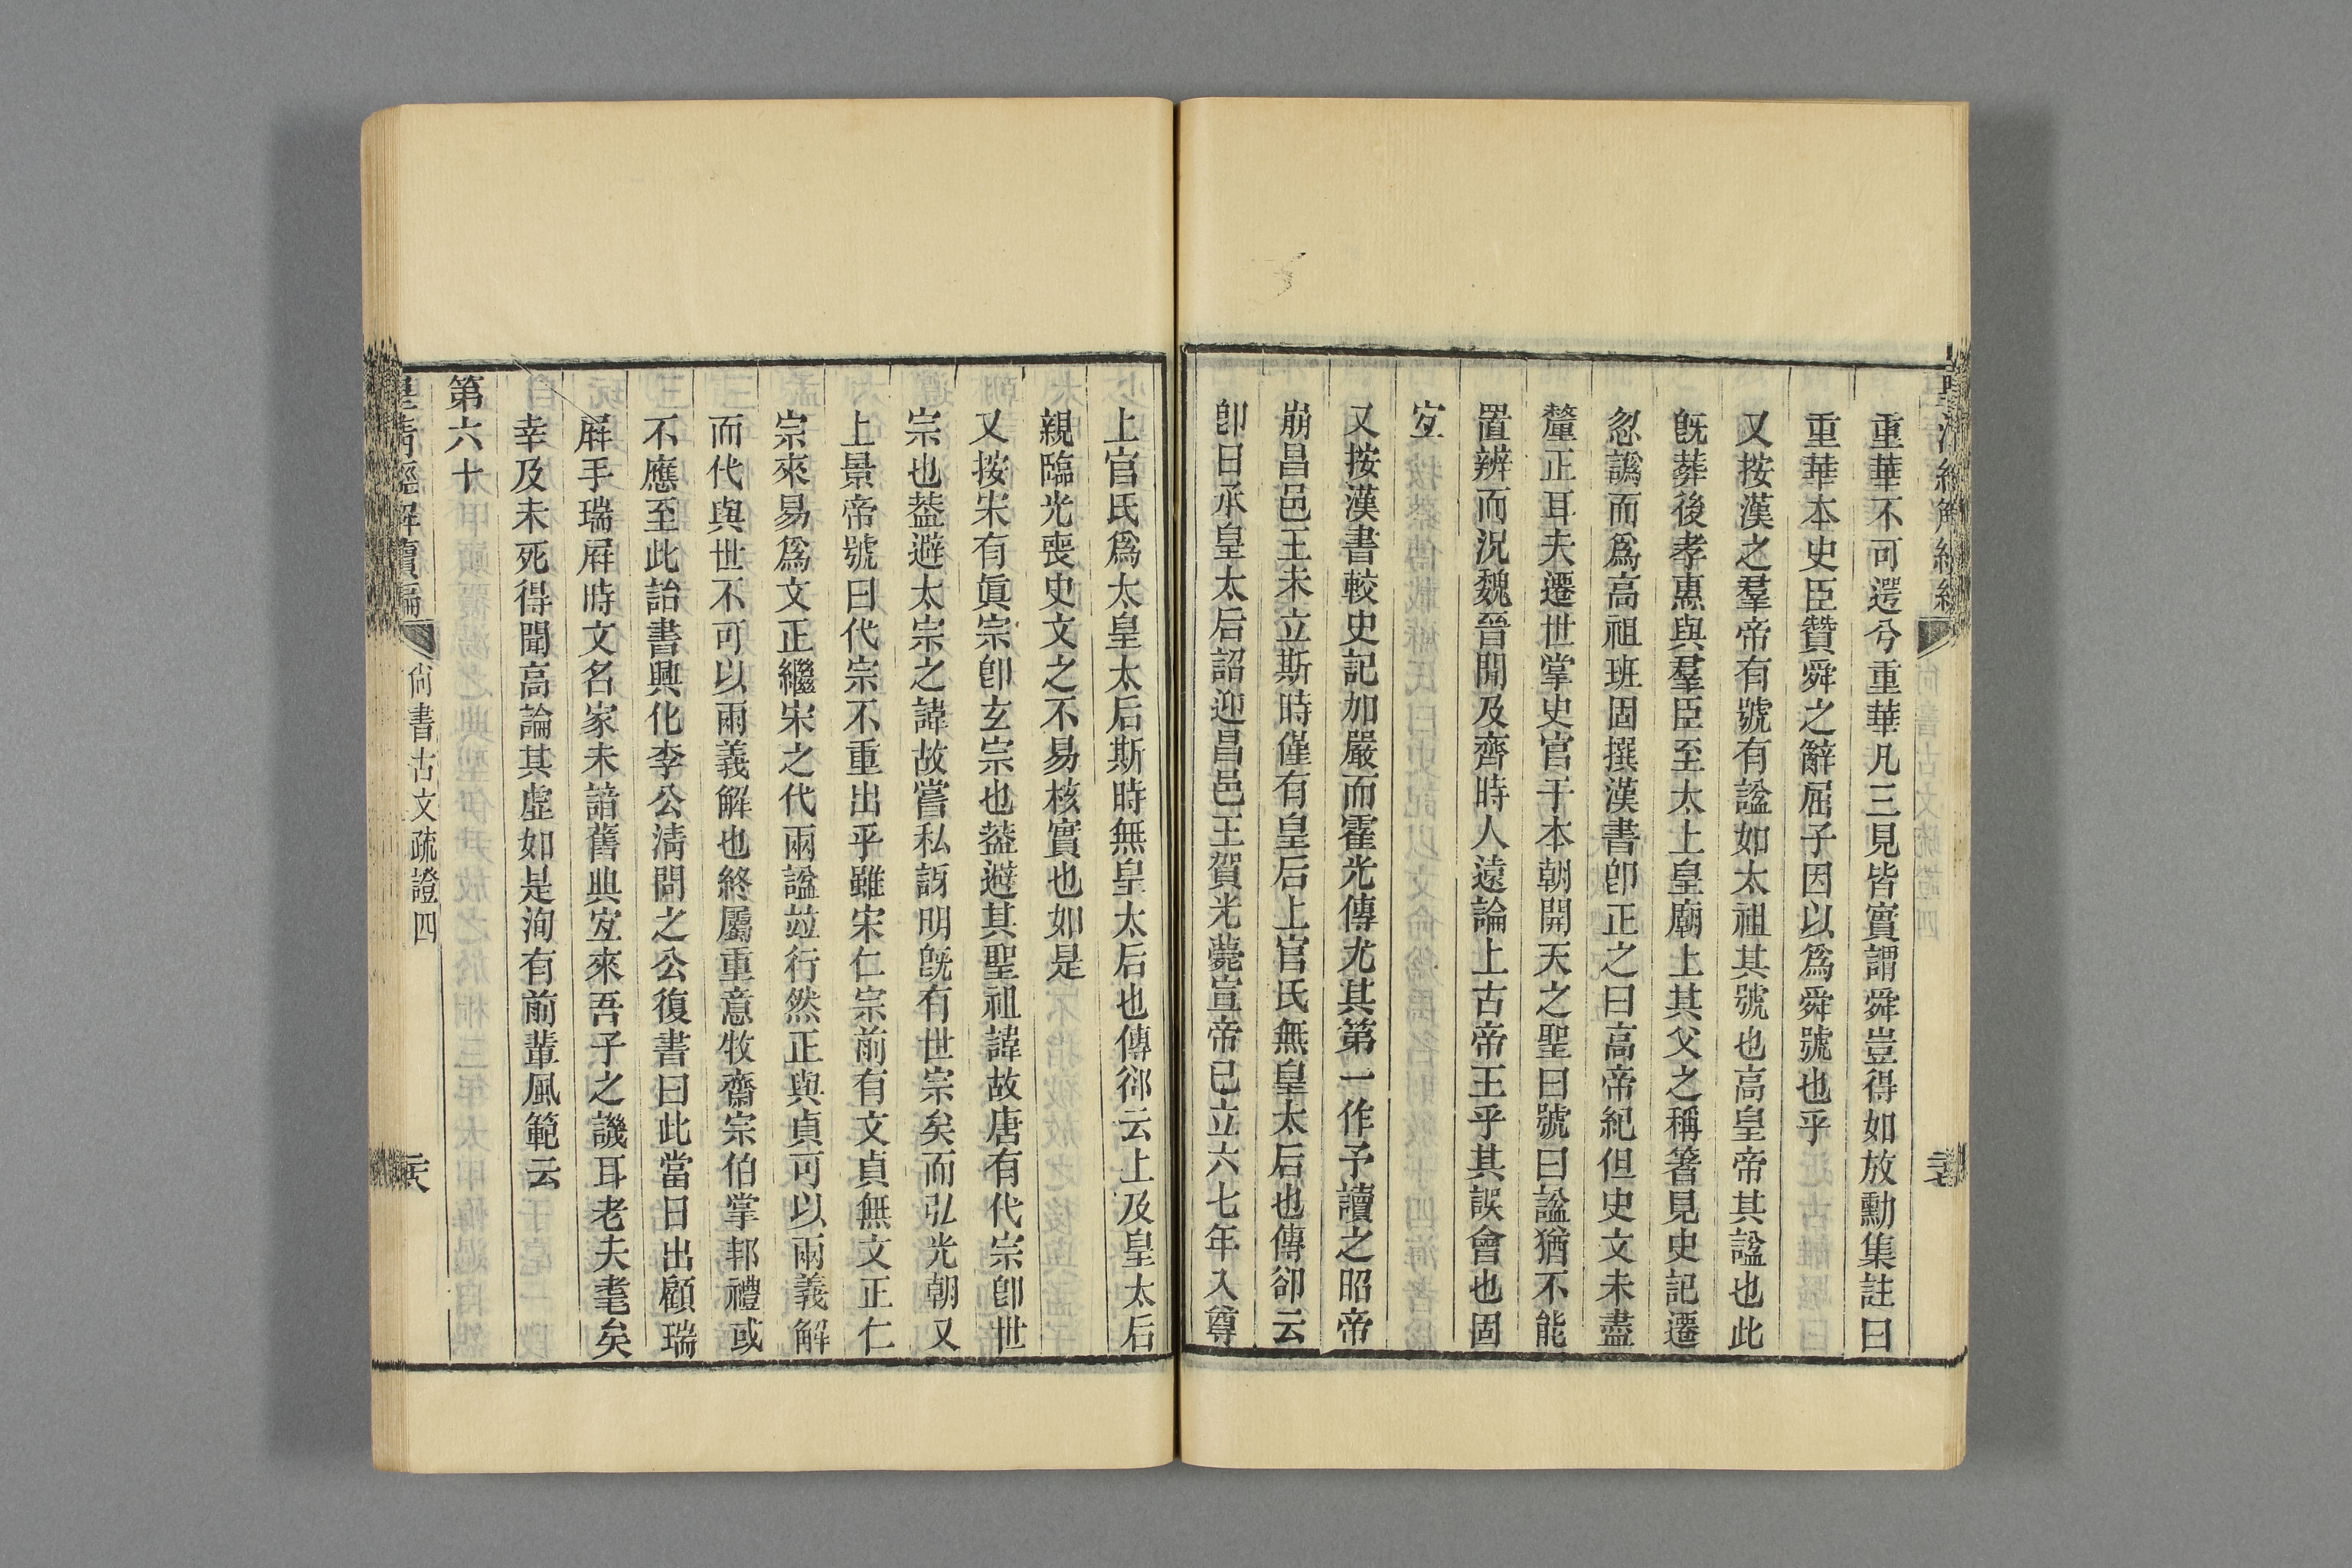 重華不可遻兮重華凡三見皆實謂舜豈得如放勳集註曰
重華本史臣贊舜之辭屈子因以爲舜號也乎
又按漢之羣帝有號有諡如太祖其號也高皇帝其諡也此
旣葬後孝惠與羣臣至太上皇廟上其父之稱箸見史記遷
忽譌而爲高祖班固撰漢書卽正之曰高帝紀但史文未盡
釐正耳夫遷世掌史官于本朝開天之聖曰號曰諡猶不能
置辨而況魏晉閒及齊時人遠論上古帝王乎其誤會也固
宐
又按漢書較史記加嚴而霍光傳尤其第一作予讀之昭帝
崩昌邑王未立斯時僅有皇后上官氏無皇太后也傳卻云
卽日承皇太后詔迎昌邑王賀光薨宣帝已立六七年入尊
上官氏爲太皇太后斯時無皇太后也傳卻云上及皇太后
親臨光喪史文之不易核實也如是
又按宋有眞宗卽玄宗也葢避其聖祖諱故唐有代宗卽世
宗也葢避太宗之諱故嘗私訝明旣有世宗矣而弘光朝又
上景帝號曰代宗不重出乎雖宋仁宗前有文貞無文正仁
宗來易爲文正繼宋之代兩諡竝行然正與貞可以兩義解
而代與世不可以兩義解也終屬重意牧齋宗伯掌邦禮或
不應至此詒書興化李公淸問之公復書曰此當日出顧瑞
屛手瑞屛時文名家未諳舊典宐來吾子之譏耳老夫耄矣
幸及未死得聞高論其虛如是洵有前輩風範云
第六十
皇淸經解續編
尙書古文疏證四